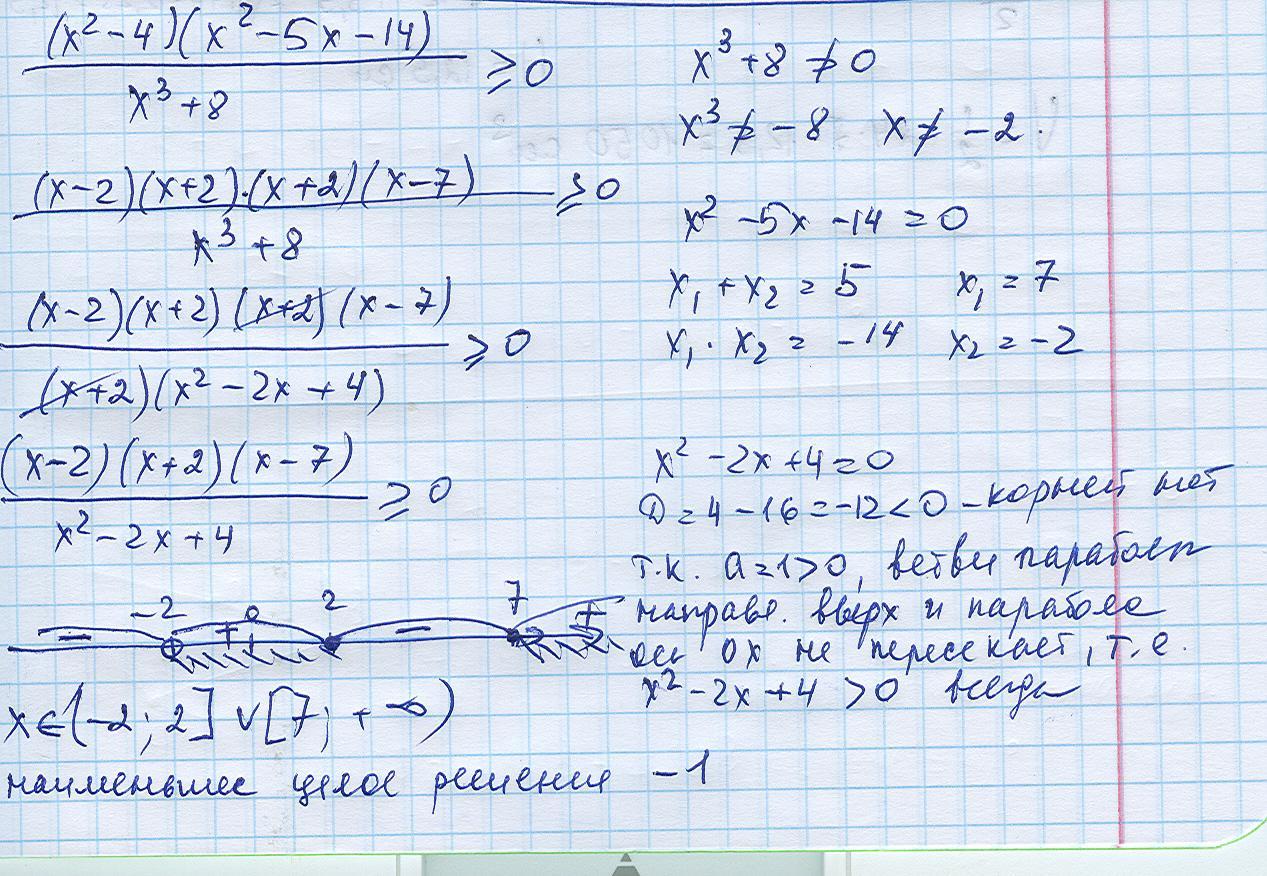 (x² - 4)(x² - 5x - 14)
x³ + 8
≥ 0
x³ + 8 ≠ 0
x³ ≠ - 8 x ≠ - 2.
(x - 2)(x + 2)·(x + 2)(x - 7)
x³ + 8
≥ 0
x² - 5x - 14 = 0
x₁ + x₂ = 5 x₁ = 7
x₁ · x₂ = - 14 x₂ = - 2
(x - 2)(x + 2)(x + 2)(x - 7)
(x + 2)(x² - 2x + 4)
≥ 0
(x - 2)(x + 2)(x - 7)
x² - 2x + 4
≥ 0
x² - 2x + 4 = 0
D = 4 - 16 = -12 < 0 - корней нет
т.к. a = 1 > 0, ветви параболы
направл. вверх и парабола
ось ox не пересекает, т.е.
x² - 2x + 4 > 0 всегда
-2 0 2 7
- + - +
x ∈ (-2; 2] ∨ [7; + ∞)
наименьшее целое решение - 1